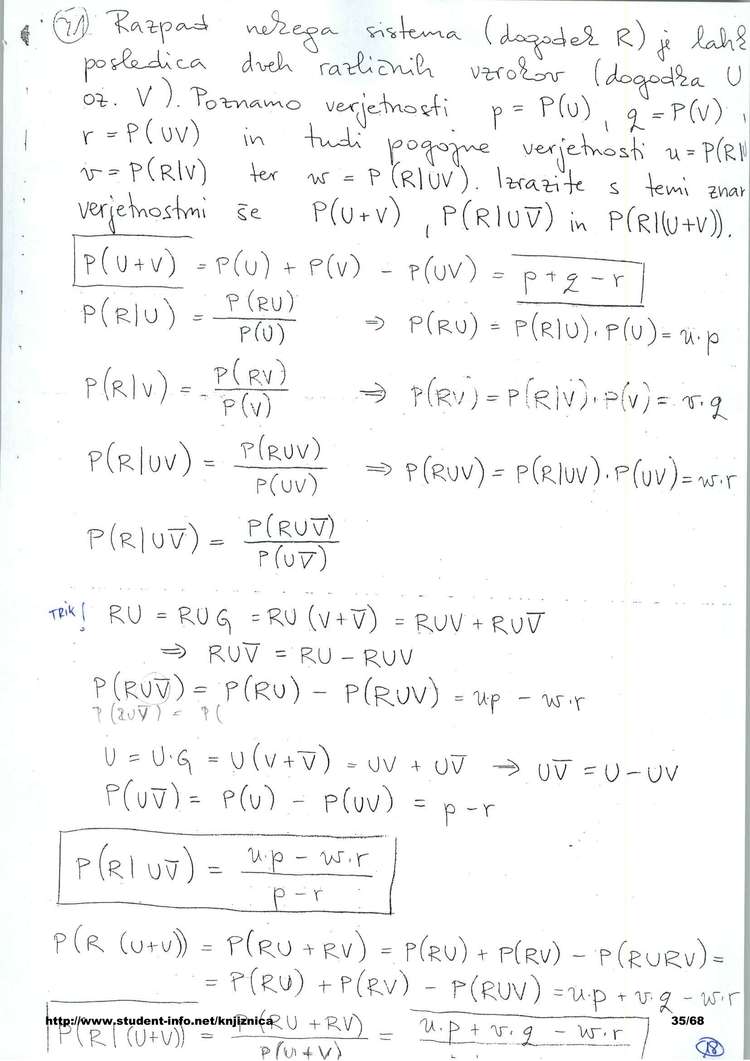 71 Razpad nekega sistema (dogodek R) je lahk
posledica dveh različnih vzrokov (dogodka U
oz. V). Poznamo verjetnosti p = P(U), q = P(V),
r = P(UV) in tudi pogojne verjetnosti u = P(R|
v = P(R|V) ter w = P(R|UV). Izrazite s temi znan
verjetnostmi še P(U+V), P(R|UV̅) in P(R|(U+V)).
P(U+V) = P(U) + P(V) - P(UV) = p + q - r
P(R|U) = P(RU)/P(U) ⇒ P(RU) = P(R|U)·P(U) = u·p
P(R|V) = P(RV)/P(V) ⇒ P(RV) = P(R|V)·P(V) = v·q
P(R|UV) = P(RUV)/P(UV) ⇒ P(RUV) = P(R|UV)·P(UV) = w·r
P(R|UV̅) = P(RUV̅)/P(UV̅)
TRIK! RU = RUG = RU(V+V̅) = RUV + RUV̅
⇒ RUV̅ = RU - RUV
P(RUV̅) = P(RU) - P(RUV) = u·p - w·r
P(RUV̅) = P(
U = U·G = U(V+V̅) = UV + UV̅ → UV̅ = U - UV
P(UV̅) = P(U) - P(UV) = p - r
P(R|UV̅) = (u·p - w·r)/(p - r)
P(R (U+V)) = P(RU + RV) = P(RU) + P(RV) - P(RURV) =
= P(RU) + P(RV) - P(RUV) = u·p + v·q - w·r
P(R|(U+V)) = P(RU + RV)/P(U+V) = u·p + v·q - w·r
http://www.student-info.net/knjiznica 35/68
18